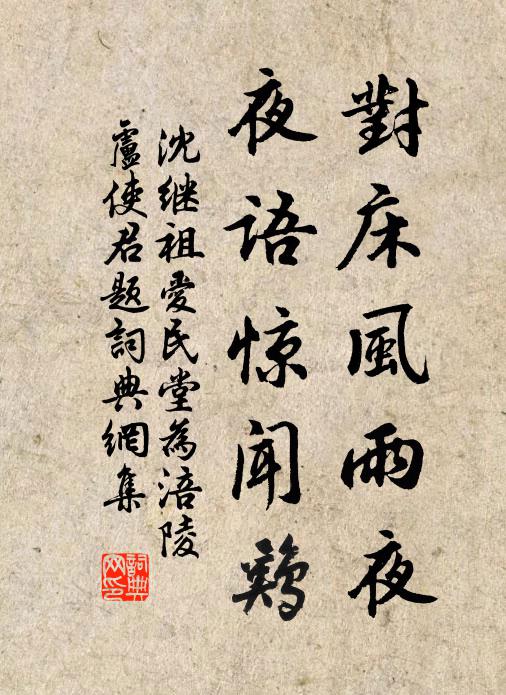 對床風雨夜
夜語惊闻鷄
沈继祖愛民堂為涪陵
盧使君题詞典網集
詞典
网印